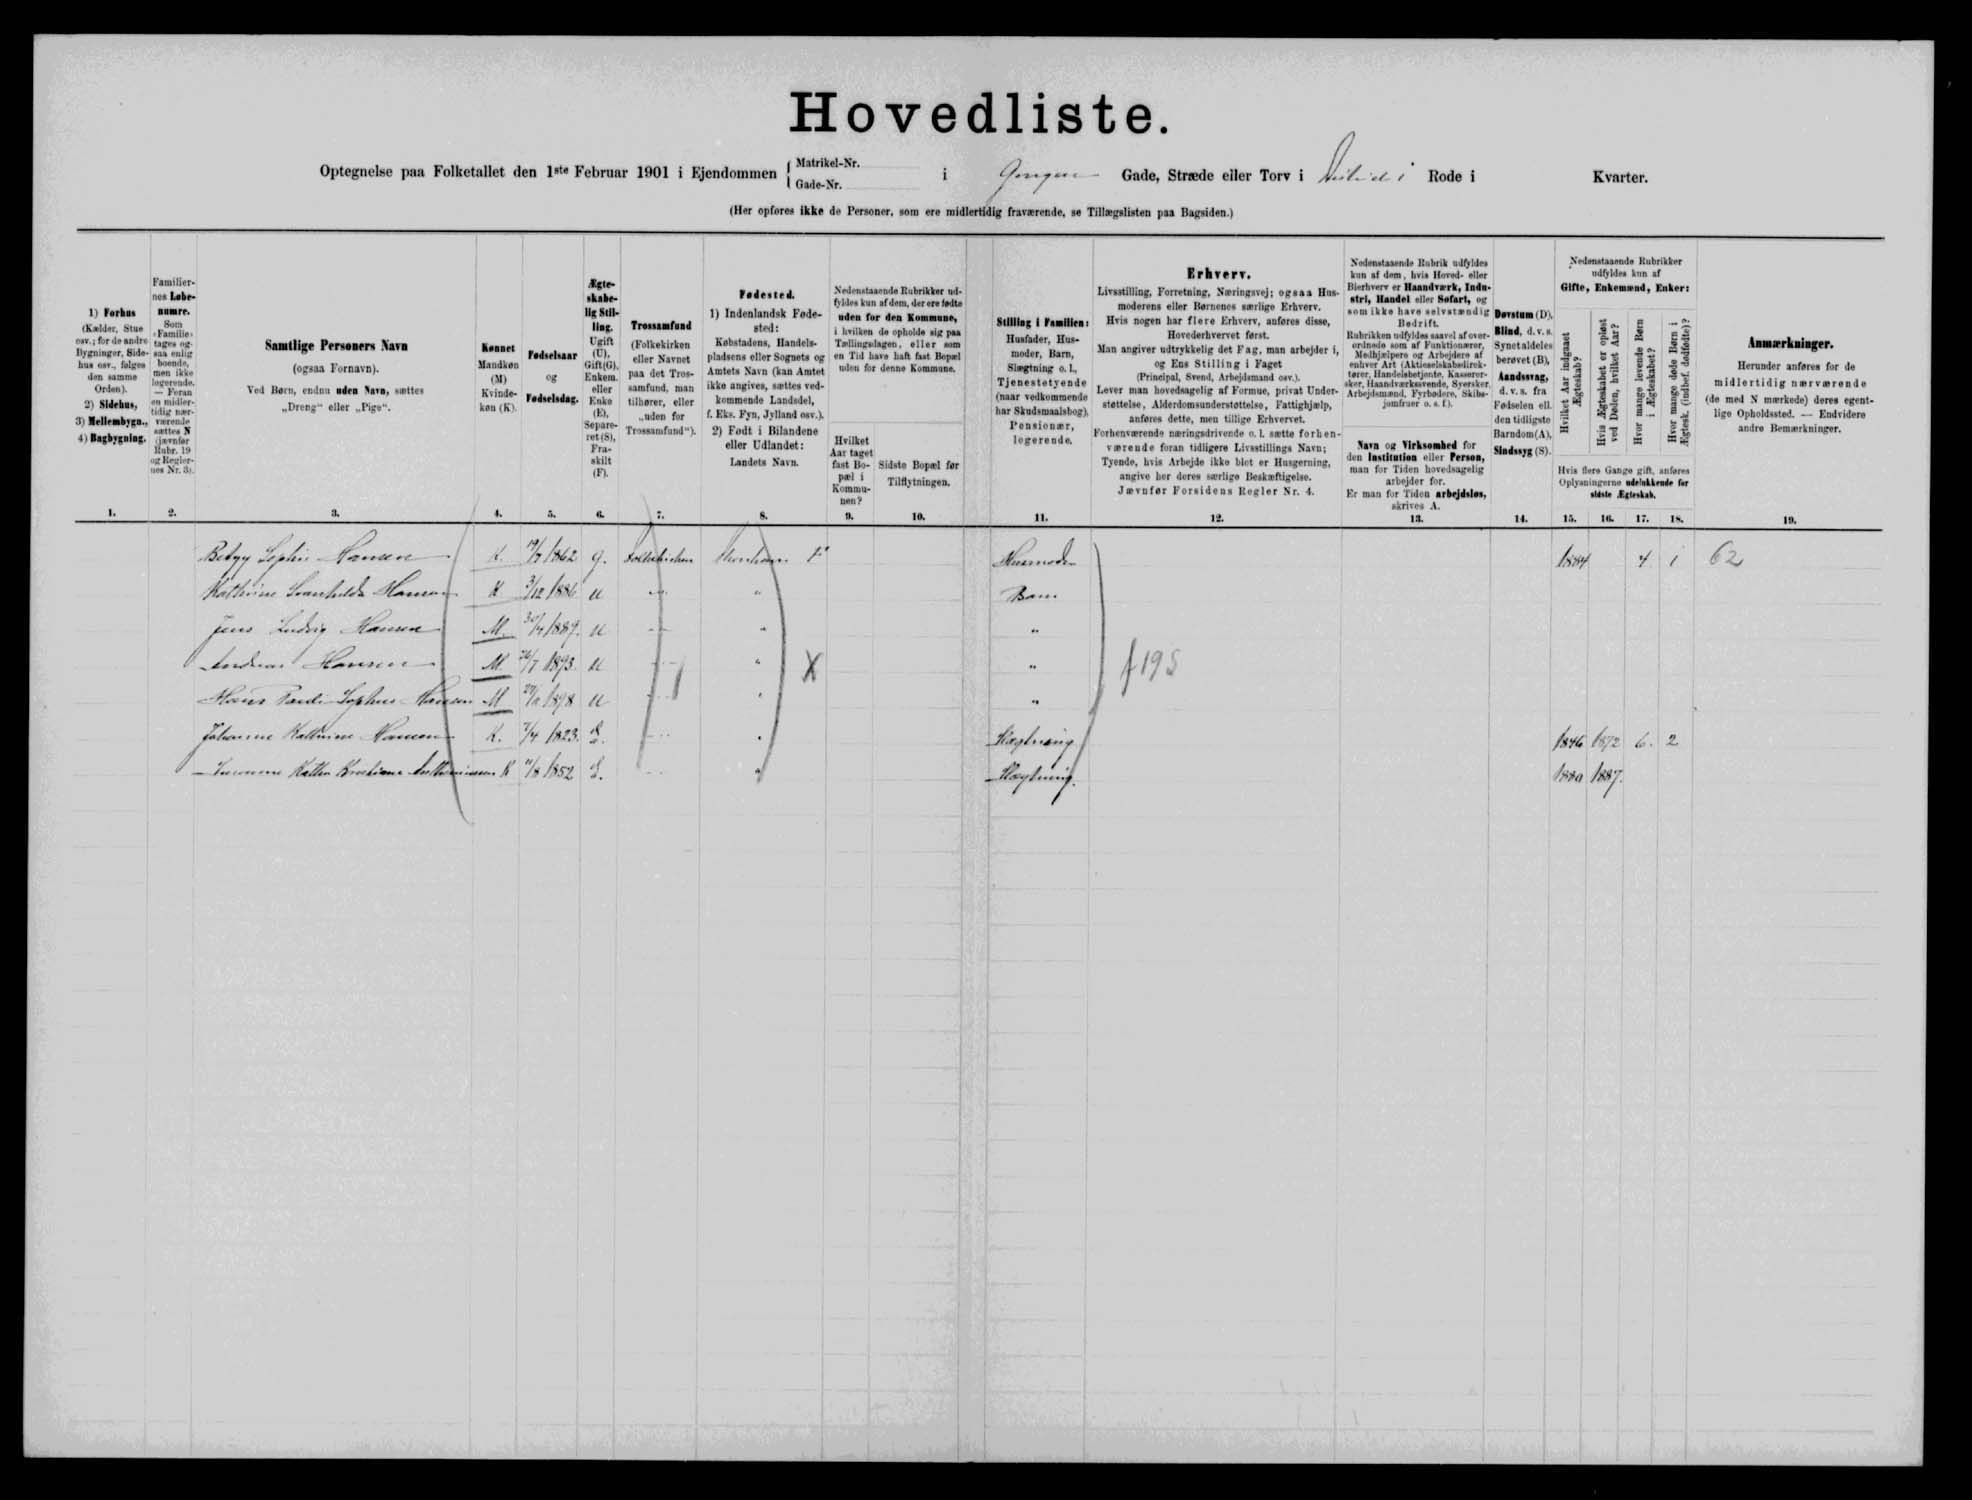 Hovedliste.
Optegnelse paa Folketallet den 1ste Februar 1901 i Ejendommen { Matrikel-Nr. Gade-Nr. i Gongen Gade, Stræde eller Torv i Rode i Kvarter.
(Her opføres ikke de Personer, som ere midlertidig fraværende, se Tillægslisten paa Bagsiden.)
1) Forhus
(Kælder, Stue
osv.; for de andre
Bygninger, Side-
hus osv., følges
den samme
Orden).
2) Sidehus,
3) Mellembygn.,
4) Bagbygning.
Familier-
nes Løbe-
numre.
Som
"Familie"
tages og-
saa enlig
boende,
men ikke
logerende.
— Foran
en midler-
tidig nær-
værende
sættes N
(jævnfør
Rubr. 19
og Regler-
nes Nr. 3).
Samtlige Personers Navn
(ogsaa Fornavn).
Ved Børn, endnu uden Navn, sættes
„Dreng“ eller „Pige“.
Kønnet
Mandkøn
(M)
Kvinde-
køn (K).
Fødselsaar
og
Fødselsdag.
Ægte-
skabe-
lig Stil-
ling.
Ugift
(U),
Gift(G),
Enkem.
eller
Enke
(E),
Separe-
ret (S),
Fra-
skilt
(F).
Trossamfund
(Folkekirken
eller Navnet
paa det Tros-
samfund, man
tilhører, eller
„uden for
Trossamfund“).
Fødested.
1) Indenlandsk Føde-
sted:
Købstadens, Handels-
pladsens eller Sognets og
Amtets Navn (kan Amtet
ikke angives, sættes ved-
kommende Landsdel,
f. Eks. Fyn, Jylland osv.).
2) Født i Bilandene
eller Udlandet:
Landets Navn.
Nedenstaaende Rubrikker ud-
fyldes kun af dem, der ere fødte
uden for den Kommune,
i hvilken de opholde sig paa
Tællingsdagen, eller som
en Tid have haft fast Bopæl
uden for denne Kommune.
Hvilket
Aar taget
fast Bo-
pæl i
Kommu-
nen?
Sidste Bopæl før
Tilflytningen.
Stilling i Familien:
Husfader, Hus-
moder, Barn,
Slægtning o. l.,
Tjenestetyende
(naar vedkommende
har Skudsmaalsbog),
Pensionær,
logerende.
Erhverv.
Livsstilling, Forretning, Næringsvej; ogsaa Hus-
moderens eller Børnenes særlige Erhverv.
Hvis nogen har flere Erhverv, anføres disse,
Hovederhvervet først.
Man angiver udtrykkelig det Fag, man arbejder i,
og Ens Stilling i Faget
(Principal, Svend, Arbejdsmand osv.).
Lever man hovedsagelig af Formue, privat Under-
støttelse, Alderdomsunderstøttelse, Fattighjælp,
anføres dette, men tillige Erhvervet.
Forhenværende næringsdrivende o. l. sætte forhen-
værende foran tidligere Livsstillings Navn;
Tyende, hvis Arbejde ikke blot er Husgerning,
angive her deres særlige Beskæftigelse.
Jævnfør Forsidens Regler Nr. 4.
Nedenstaaende Rubrik udfyldes
kun af dem, hvis Hoved- eller
Bierhverv er Haandværk, Indu-
stri, Handel eller Søfart, og
som ikke have selvstændig
Bedrift.
Rubrikken udfyldes saavel af over-
ordnede som af Funktionærer,
Medhjælpere og Arbejdere af
enhver Art (Aktieselskabsdirek-
tører, Handelsbetjente, Kasserer-
sker, Haandværkssvende, Syersker,
Arbejdsmænd, Fyrbødere, Skibs-
jomfruer o. s. f.).
Navn og Virksomhed for
den Institution eller Person,
man for Tiden hovedsagelig
arbejder for.
Er man for Tiden arbejdsløs,
skrives A.
Døvstum (D),
Blind, d. v. s.
Synet aldeles
berøvet (B),
Aandssvag,
d. v. s. fra
Fødselen ell.
den tidligste
Barndom (A),
Sindssyg (S).
Nedenstaaende Rubrikker
udfyldes kun af
Gifte, Enkemænd, Enker:
Hvilket Aar indgaaet
Ægteskab?
Hvis Ægteskabet er opløst
ved Døden, hvilket Aar?
Hvor mange levende Børn
i Ægteskabet?
Hvor mange døde Børn i
Ægtesk. (indbef. dødfødte)?
Hvis flere Gange gift, anføres
Oplysningerne udelukkende for
sidste Ægteskab.
Anmærkninger.
Herunder anføres for de
midlertidig nærværende
(de med N mærkede) deres egent-
lige Opholdssted. — Endvidere
andre Bemærkninger.
1. 2. 3. 4. 5. 6. 7. 8. 9. 10. 11. 12. 13. 14. 15. 16. 17. 18. 19.
Betzy Sophie Hansen K. 19/7 1862 g. Folkekirken Thorshavn F Husmoder 1884 4 1 62
Kathrine Svanhilda Hansen K 3/12 1886 u " " Barn
Jens Ludvig Hansen M. 30/4 1889. u " " "
Andreas Hansen M 26/7 1893 u " " X " f 195
Hans Pauli Sophus Hansen M 1898 u " " "
Johanne Kathrine Hansen K. 7/4 1823. E. " " Slægtning 1846 1872 6. 2
Susanne Kathr. Kristiane K 11/8 1852 E. " " Slægtning. 1880 1887.